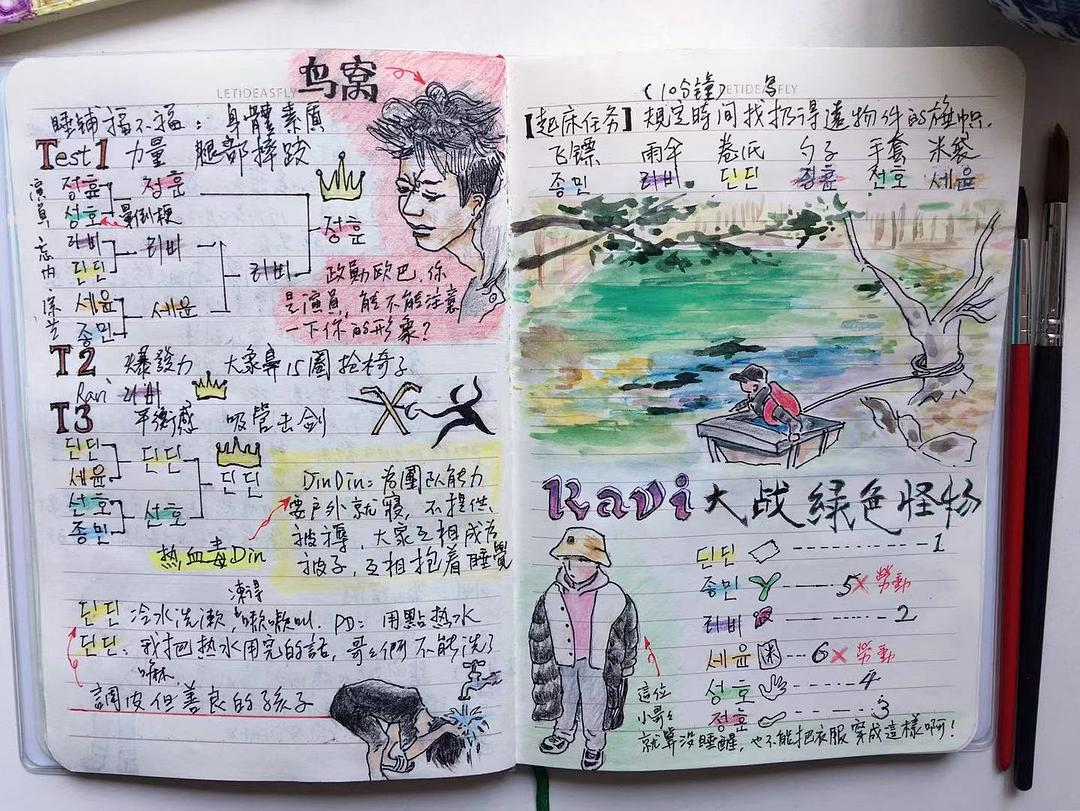 LETIDEASFLY
鸟窝
睡铺福不福：身體素质
Test1 力量 腿部摔跤
演員
忘内
정훈
정훈
성호
라비
라비
딘딘
세윤
세윤
종민
라비
정훈
政勳欧巴，你
是演員，能不能注意
一下你的形象？
T2 爆發力 大象鼻15圈抢椅子
Ravi 라비
T3 平衡感 吸管击剑
딘딘
딘딘
세윤
선호
선호
종민
딘딘
DinDin：为團队能力
要户外就寢，不提供
被褥，大家互相成为
被子，互相抱着睡覺
热血毒Din
凍得
딘딘 冷水洗漱 嗷嗷叫．PD：用點热水
딘딘：我把热水用完的話，哥々们不能洗了
嘛．
調皮但善良的孩子
(10分鐘)
LETIDEASFLY
【起床任务】規定時间找扔得遠物件的旗帜．
飞镖 雨伞 卷纸 勺子 手套 米袋
종민 라비 딘딘 정훈 선호 세윤
Ravi 大战綠色怪物
딘딘 1
종민 5× 勞動
라비 2
세윤 6× 勞動
성호 4
정훈 3
這位
小哥々
就算没睡醒，也不能把衣服穿成這樣啊！